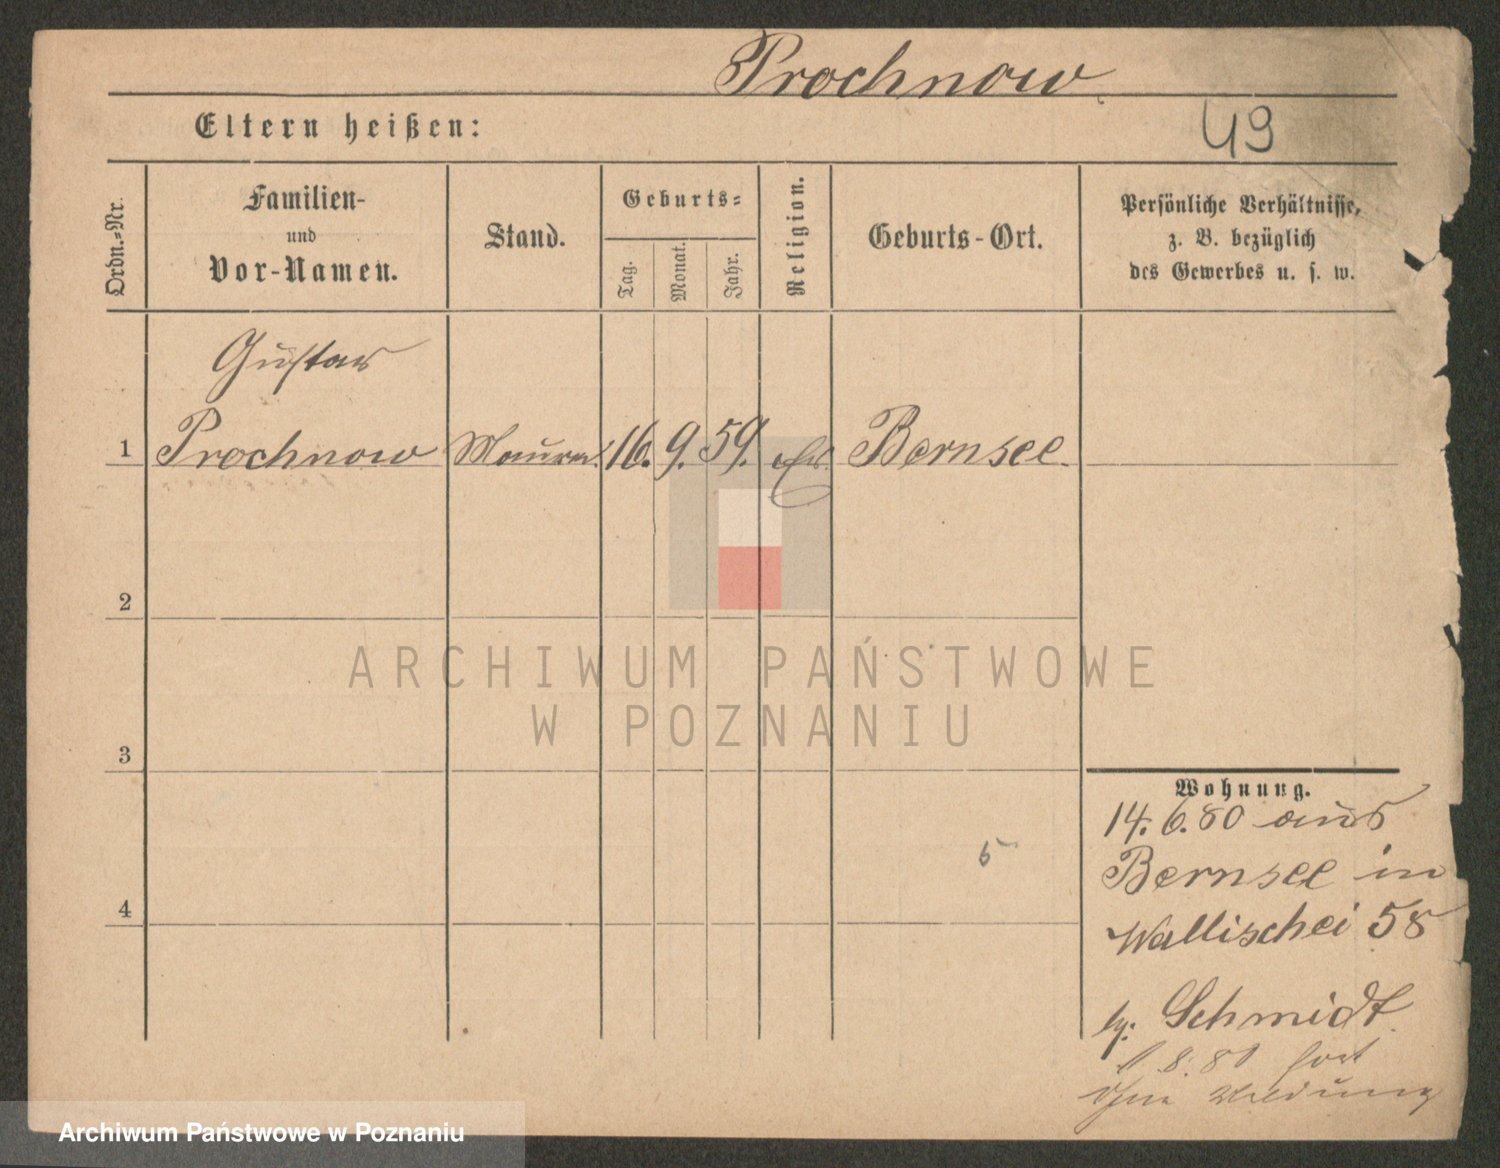 Prochnow.
Eltern heißen:
49
Ordn.-Nr.
Familien-
und
Vor-Namen.
Stand.
Geburts-
Tag.
Monat.
Jahr.
Religion.
Geburts-Ort.
Persönliche Verhältnisse,
z. B. bezüglich
des Gewerbes u. s. w.
Gustav
1 Prochnow Maurer. 16. 9. 59. Ev. Bernsee.
2
3
4
5
Wohnung.
14. 6. 80 aus
Bernsee in
Wallischei 58
by: Schmidt.
8. 80 fort
ohne Meldung
ARCHIWUM PAŃSTWOWE
W POZNANIU
Archiwum Państwowe w Poznaniu